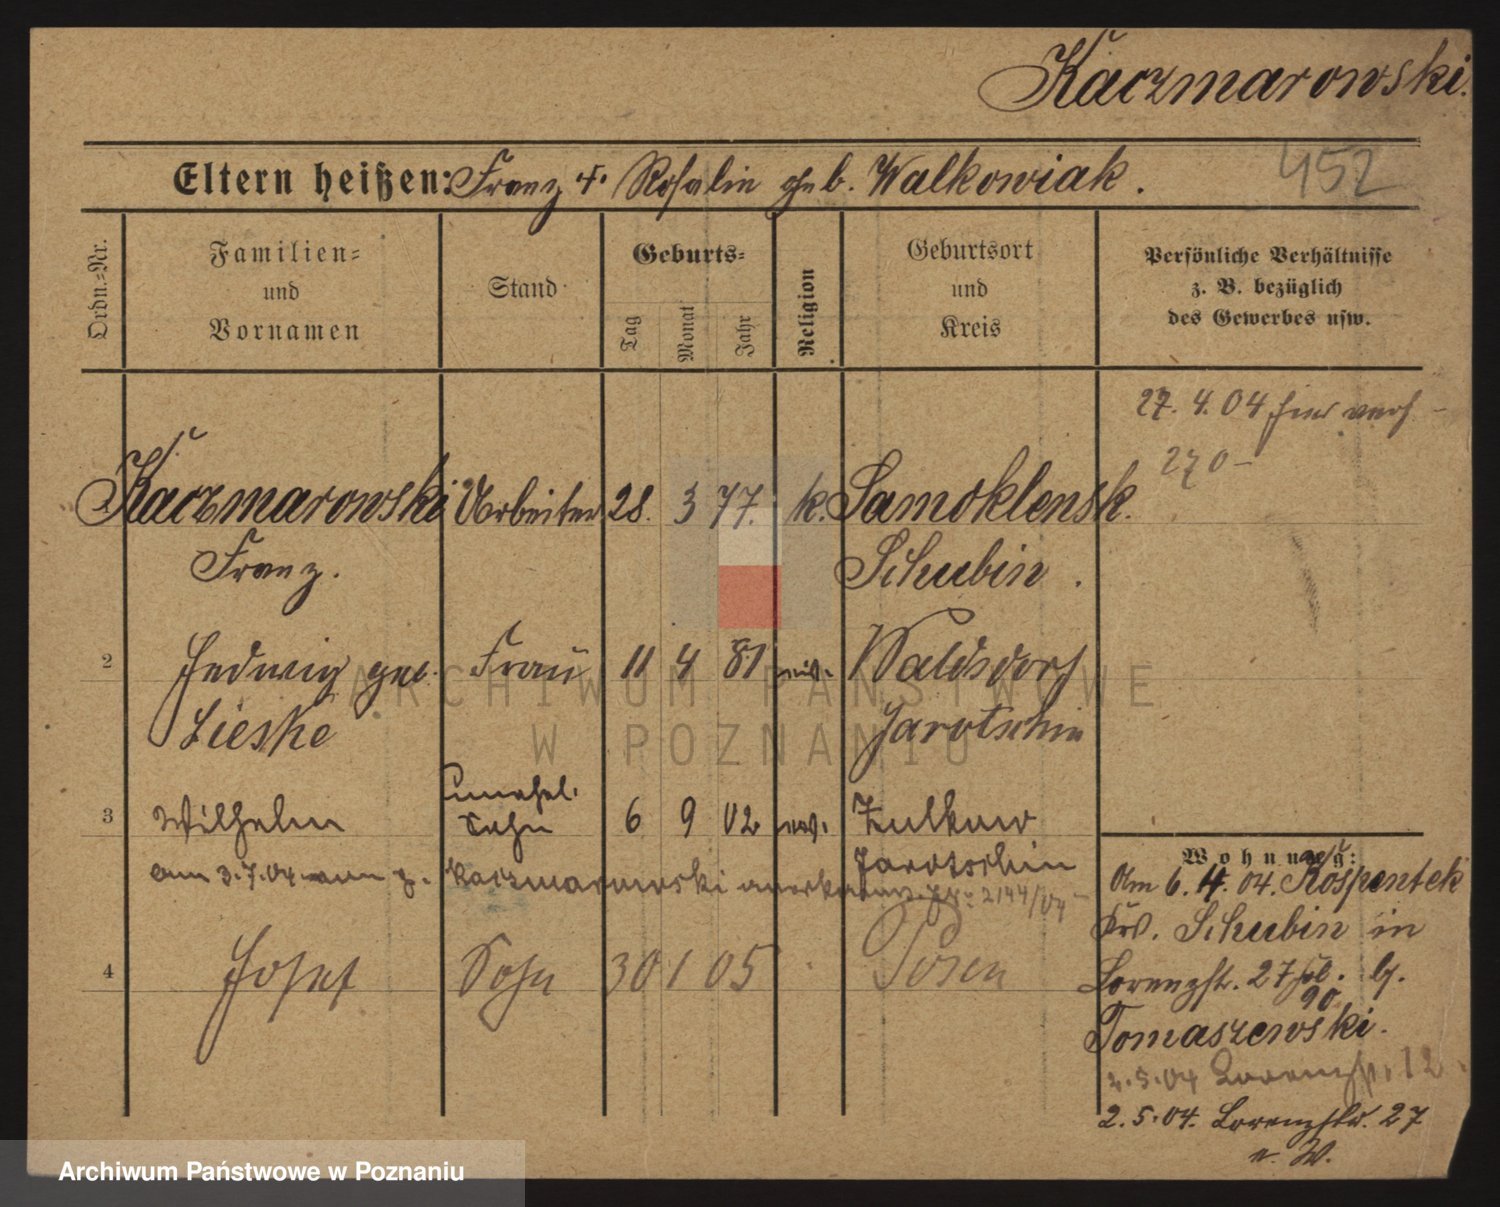 Kaczmarowski.
Eltern heißen: Franz u. Rosalie geb. Walkowiak.
452
Ordn.-Nr.
Familien-
und
Vornamen
Stand
Geburts-
Tag
Monat
Jahr
Religion
Geburtsort
und
Kreis
Persönliche Verhältnisse
z. B. bezüglich
des Gewerbes usw.
27. 4. 04 hier verh
270-
Kaczmarowski Arbeiter 28. 3 77. k. Samoklensk.
Franz. Schubin.
2 Hedwig geb. Frau 11 4 81 Waldsdorf
Lieske Jarotschin
unehel.
3 Wilhelm Sohn 6 9 02 ev. Zulkow
Jarotschin
am 3.7.04 vom p. Kaczmarowski anerkannt. 2144/04
4 Josef Sohn 30 1 05 Posen
Wohnung:
Am 6. 4. 04. Rospentek
Krs. Schubin in
Lorenzstr. 27 b.
90
Tomaszewski.
2.5.04 Lorenzstr. 12.
2. 5. 04. Lorenzstr. 27
n. W.
ARCHIWUM PAŃSTWOWE
W POZNANIU
Archiwum Państwowe w Poznaniu